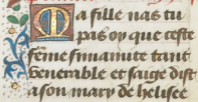 Ma fille nas tu
pas oy que ceste
fēme sunamite tant
venerable et saige dist
a son mary de helisee